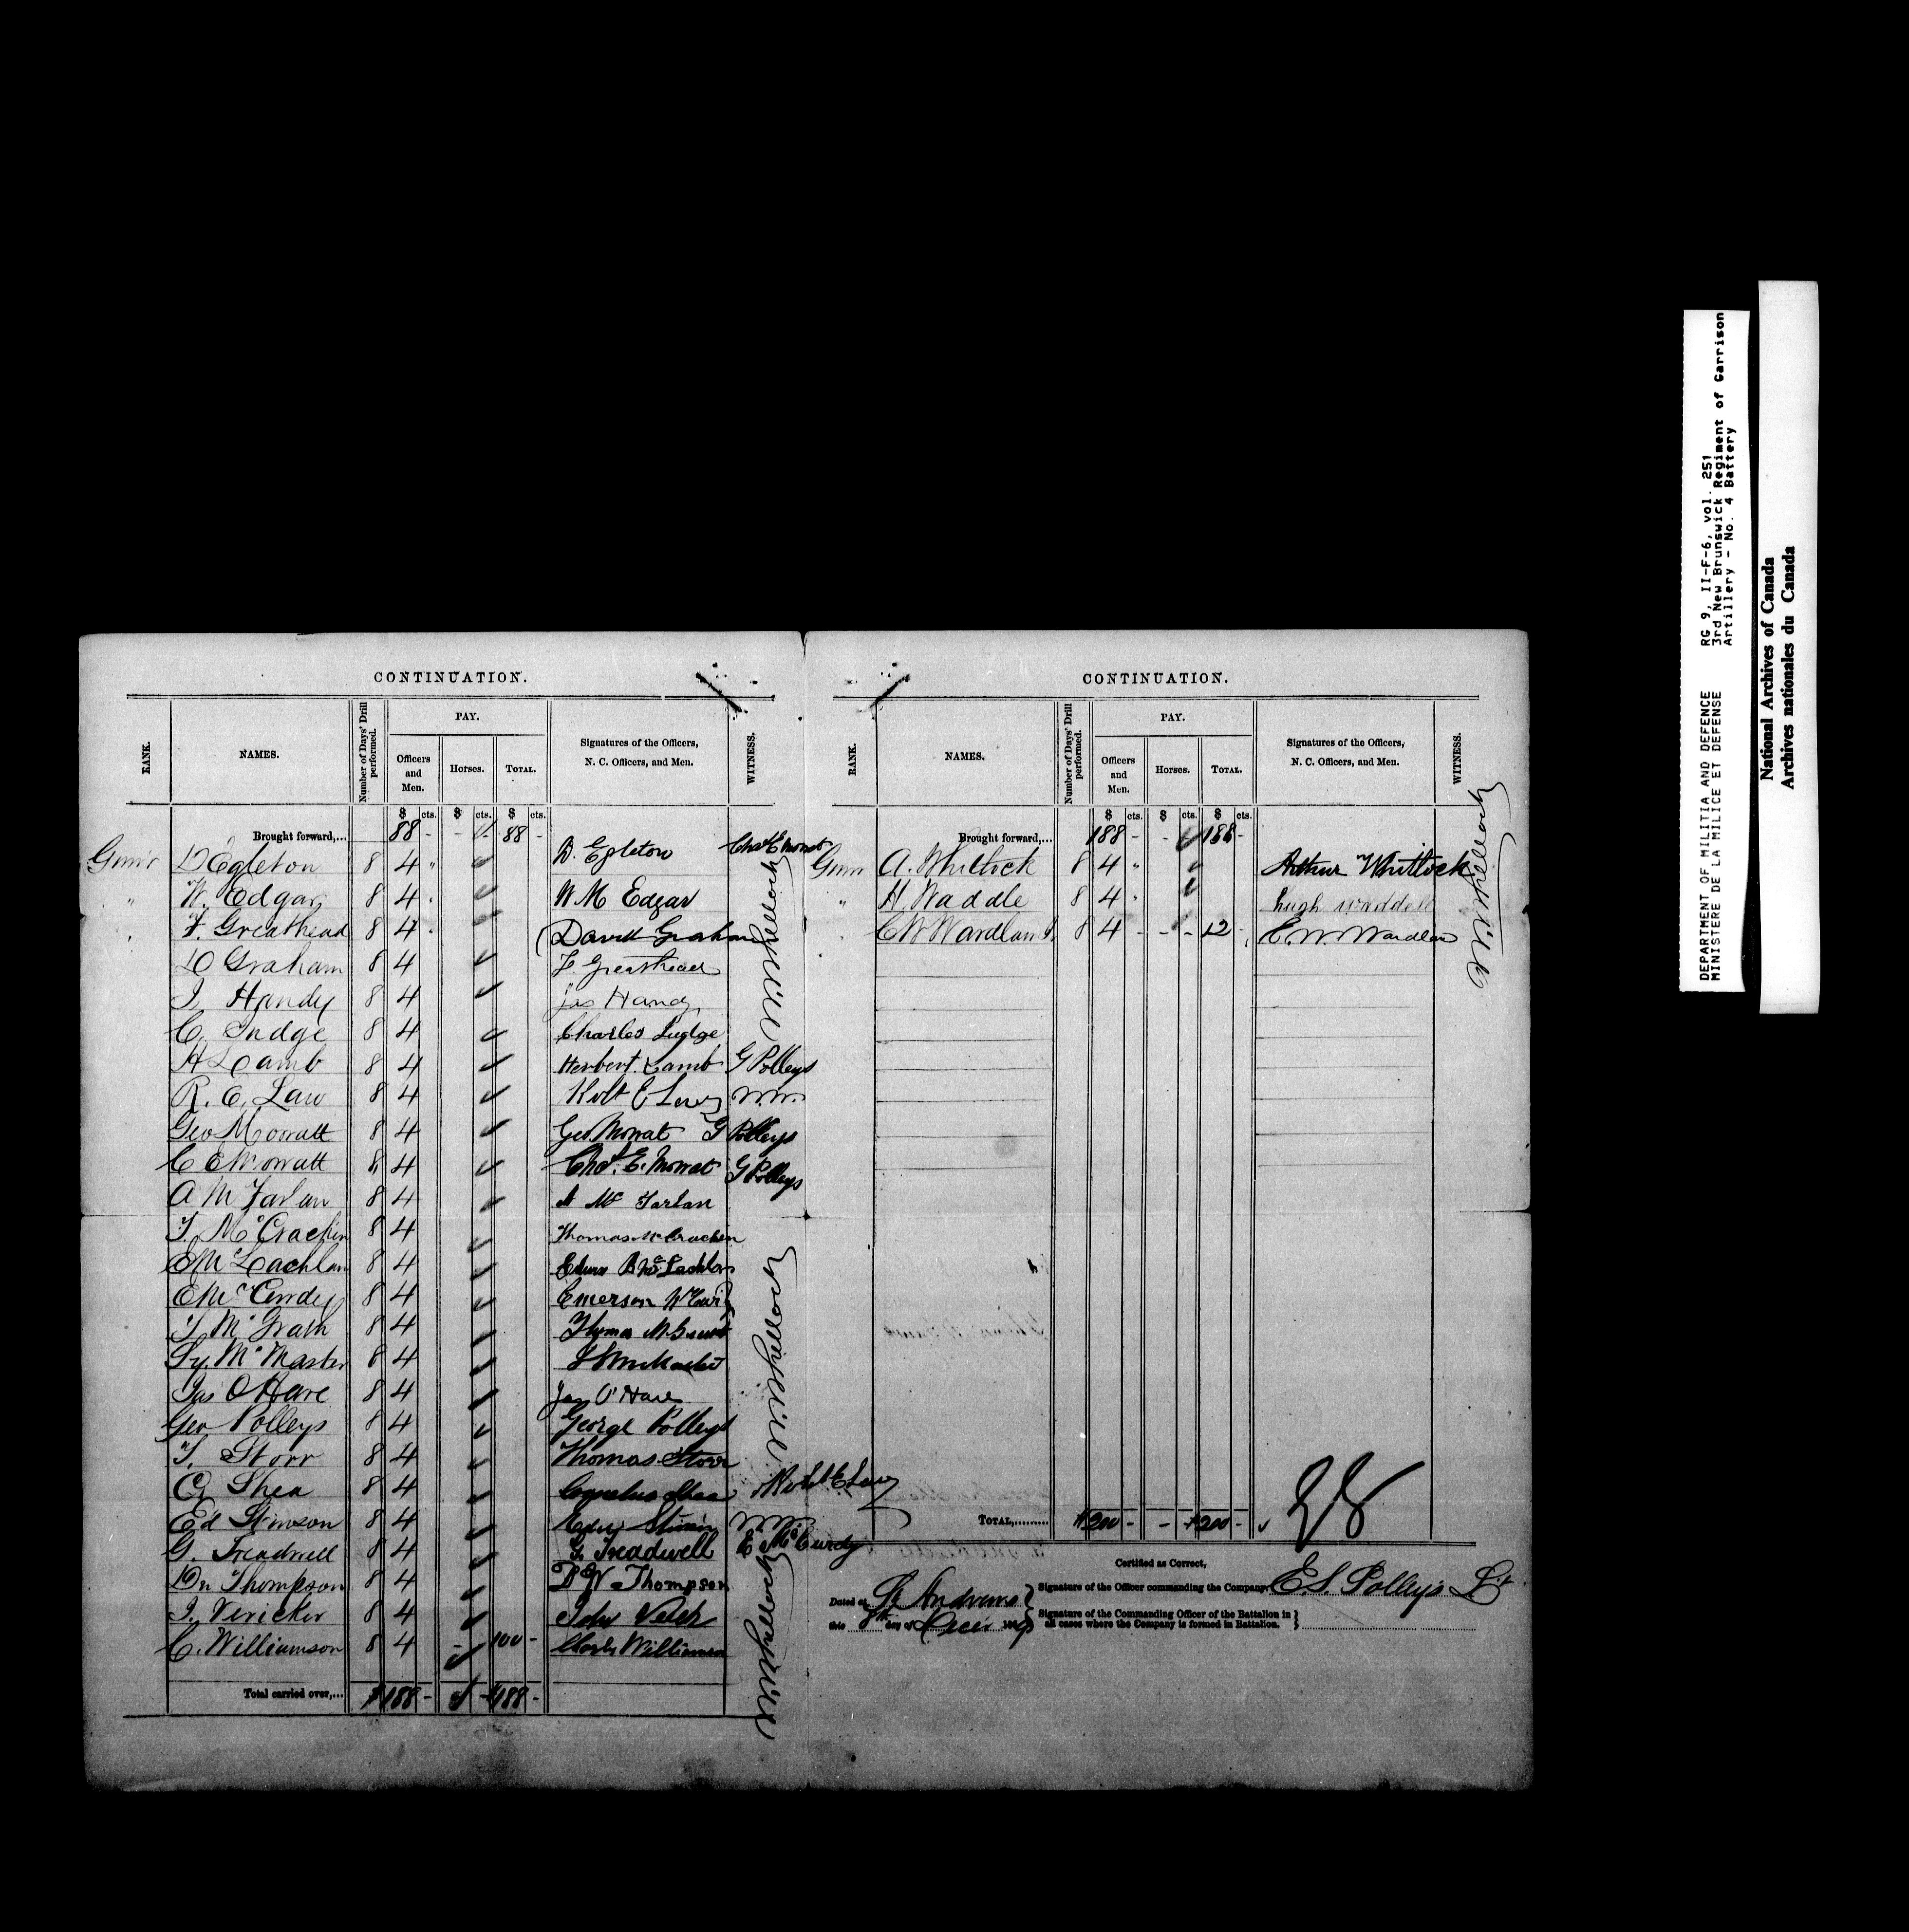 CONTINUATION.
RANK. NAMES. Number of Days' Drill performed. PAY. Officers and Men. Horses. TOTAL. Signatures of the Officers, N. C. Officers, and Men. WITNESS.
$ cts. $ cts. $ cts.
Brought forward,... 88 - - 88 -
Gunr D Egleton 8 4 " D. Egleton Chas E Mowat
" W. Edgar 8 4 " W M Edgar
" F. Greathead 8 4 " David Graham
D Graham 8 4 F Greathead
J. Handy 8 4 Jas Handy
C. Judge 8 4 Charles Judge
H Lamb 8 4 Herbert Lamb G Polleys
R. E. Law 8 4 Robt E Law W.W.
Geo Mowatt 8 4 Geo Mowat G Polleys
C E Mowatt 8 4 Chas. E. Mowat G Polleys
A Mc Farlan 8 4 A Mc Farlan
T. McCrackin 8 4 Thomas McCracken
E Mc Lachlan 8 4 Edwin B McLachlan
E McCurdy 8 4 Emerson McCurdy
T McGrath 8 4 Thomas
Sy. McMaster 8 4
Jas O Hare 8 4 Jas O'Hare
Geo Polleys 8 4 George Polleys
T. Storr 8 4 Thomas Storr
C. Shea 8 4 Cornelius Shea Robt E Law
Ed Stinson 8 4 Edw Stinson W.W.
G. Treadwell 8 4 G. Treadwell E McCurdy
Dn Thompson 8 4 D W Thompson
J. Vericker 8 4 John
C. Williamson 8 4 - 100 - Charles Williamson
Total carried over,... $188 - $188 -
CONTINUATION.
RANK. NAMES. Number of Days' Drill performed. PAY. Officers and Men. Horses. TOTAL. Signatures of the Officers, N. C. Officers, and Men. WITNESS.
$ cts. $ cts. $ cts.
Brought forward,... 188 - - 188 -
Gunr A. Whitlock 8 4 " Arthur Whitlock
" H. Waddle 8 4 " hugh waddell
C W Wardlaw 8 4 - - - 12 - E. W. Wardlaw
28
TOTAL,......... $200 - - $200 -
Certified as Correct,
Signature of the Officer commanding the Company, E. S. Polleys Lt
Dated at St Andrews
this 8th day of Decr 1869
Signature of the Commanding Officer of the Battalion in all cases where the Company is formed in Battalion.
DEPARTMENT OF MILITIA AND DEFENCE RG 9, II-F-6, vol. 251
MINISTERE DE LA MILICE ET DEFENSE 3rd New Brunswick Regiment of Garrison
Artillery - No. 4 Battery
National Archives of Canada
Archives nationales du Canada